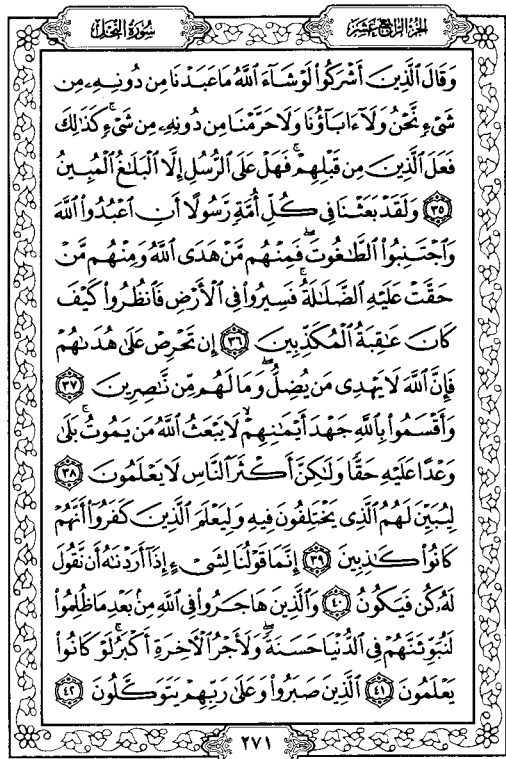 الجزء الرابع عشر
سورة النحل
وَقَالَ ٱلَّذِينَ أَشْرَكُوا۟ لَوْ شَآءَ ٱللَّهُ مَا عَبَدْنَا مِن دُونِهِۦ مِن
شَىْءٍ نَّحْنُ وَلَآ ءَابَآؤُنَا وَلَا حَرَّمْنَا مِن دُونِهِۦ مِن شَىْءٍ ۚ كَذَٰلِكَ
فَعَلَ ٱلَّذِينَ مِن قَبْلِهِمْ ۚ فَهَلْ عَلَى ٱلرُّسُلِ إِلَّا ٱلْبَلَٰغُ ٱلْمُبِينُ
٣٥ وَلَقَدْ بَعَثْنَا فِى كُلِّ أُمَّةٍ رَّسُولًا أَنِ ٱعْبُدُوا۟ ٱللَّهَ
وَٱجْتَنِبُوا۟ ٱلطَّٰغُوتَ ۖ فَمِنْهُم مَّنْ هَدَى ٱللَّهُ وَمِنْهُم مَّنْ
حَقَّتْ عَلَيْهِ ٱلضَّلَٰلَةُ ۚ فَسِيرُوا۟ فِى ٱلْأَرْضِ فَٱنظُرُوا۟ كَيْفَ
كَانَ عَٰقِبَةُ ٱلْمُكَذِّبِينَ ٣٦ إِن تَحْرِصْ عَلَىٰ هُدَىٰهُمْ
فَإِنَّ ٱللَّهَ لَا يَهْدِى مَن يُضِلُّ ۖ وَمَا لَهُم مِّن نَّٰصِرِينَ ٣٧
وَأَقْسَمُوا۟ بِٱللَّهِ جَهْدَ أَيْمَٰنِهِمْ ۙ لَا يَبْعَثُ ٱللَّهُ مَن يَمُوتُ ۚ بَلَىٰ
وَعْدًا عَلَيْهِ حَقًّا وَلَٰكِنَّ أَكْثَرَ ٱلنَّاسِ لَا يَعْلَمُونَ ٣٨
لِيُبَيِّنَ لَهُمُ ٱلَّذِى يَخْتَلِفُونَ فِيهِ وَلِيَعْلَمَ ٱلَّذِينَ كَفَرُوٓا۟ أَنَّهُمْ
كَانُوا۟ كَٰذِبِينَ ٣٩ إِنَّمَا قَوْلُنَا لِشَىْءٍ إِذَآ أَرَدْنَٰهُ أَن نَّقُولَ
لَهُۥ كُن فَيَكُونُ ٤٠ وَٱلَّذِينَ هَاجَرُوا۟ فِى ٱللَّهِ مِنۢ بَعْدِ مَا ظُلِمُوا۟
لَنُبَوِّئَنَّهُمْ فِى ٱلدُّنْيَا حَسَنَةً ۖ وَلَأَجْرُ ٱلْءَاخِرَةِ أَكْبَرُ ۚ لَوْ كَانُوا۟
يَعْلَمُونَ ٤١ ٱلَّذِينَ صَبَرُوا۟ وَعَلَىٰ رَبِّهِمْ يَتَوَكَّلُونَ ٤٢
٢٧١